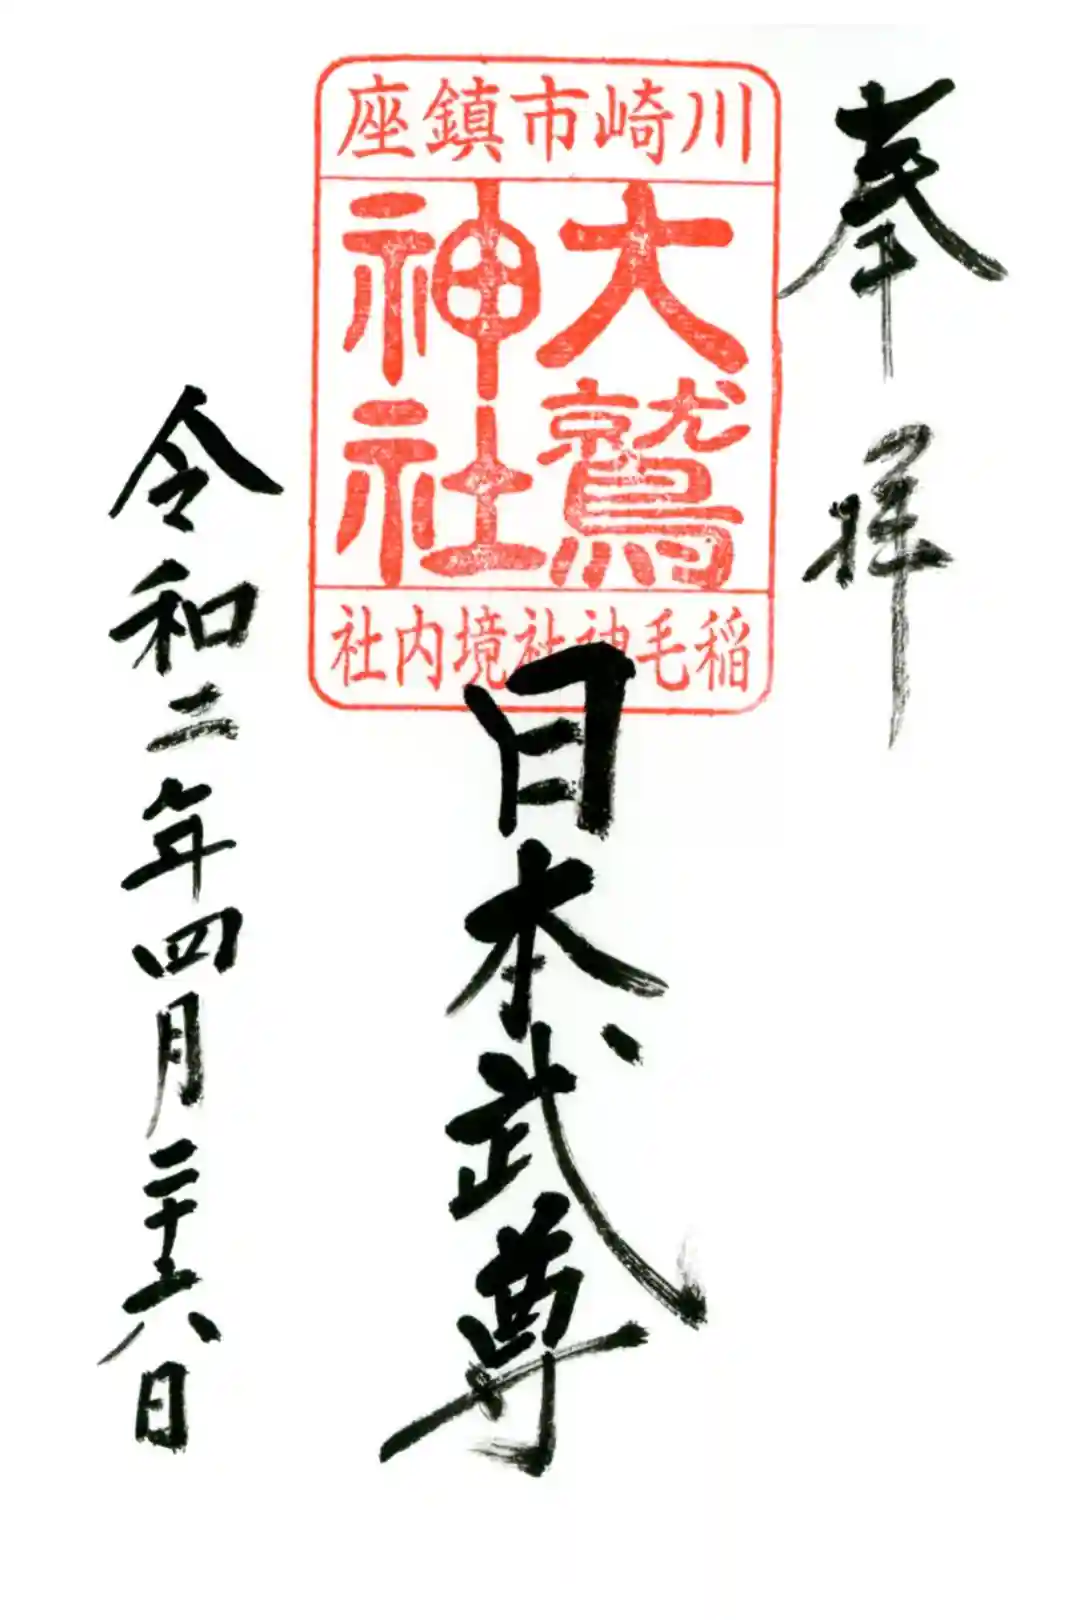 奉拝
川崎市鎮座
大鷲
神社
稲毛神社境内社
日本武尊
令和二年四月二十六日